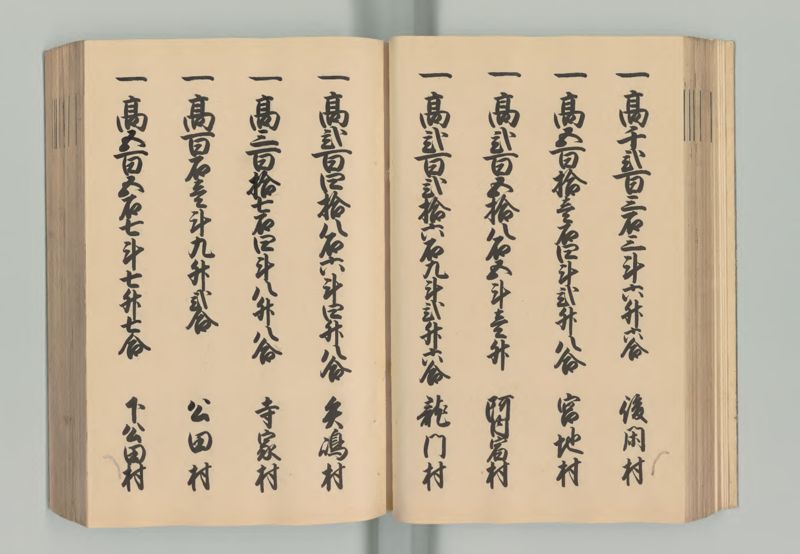 一 高千弐百三石三斗六升六合 後閑村
一 高五百拾壱石四斗弐升八合 宮地村
一 高弐百五拾八石五斗壱升 阿内宿村
一 高弐百弐拾六石九斗弐升六合 龍門村
一 高弐百四拾八石六斗四升八合 矢嶋村
一 高三百拾七石四斗八升八合 寺家村
一 高百石壱斗九升弐合 公田村
一 高五百五石七斗七升七合 下公田村